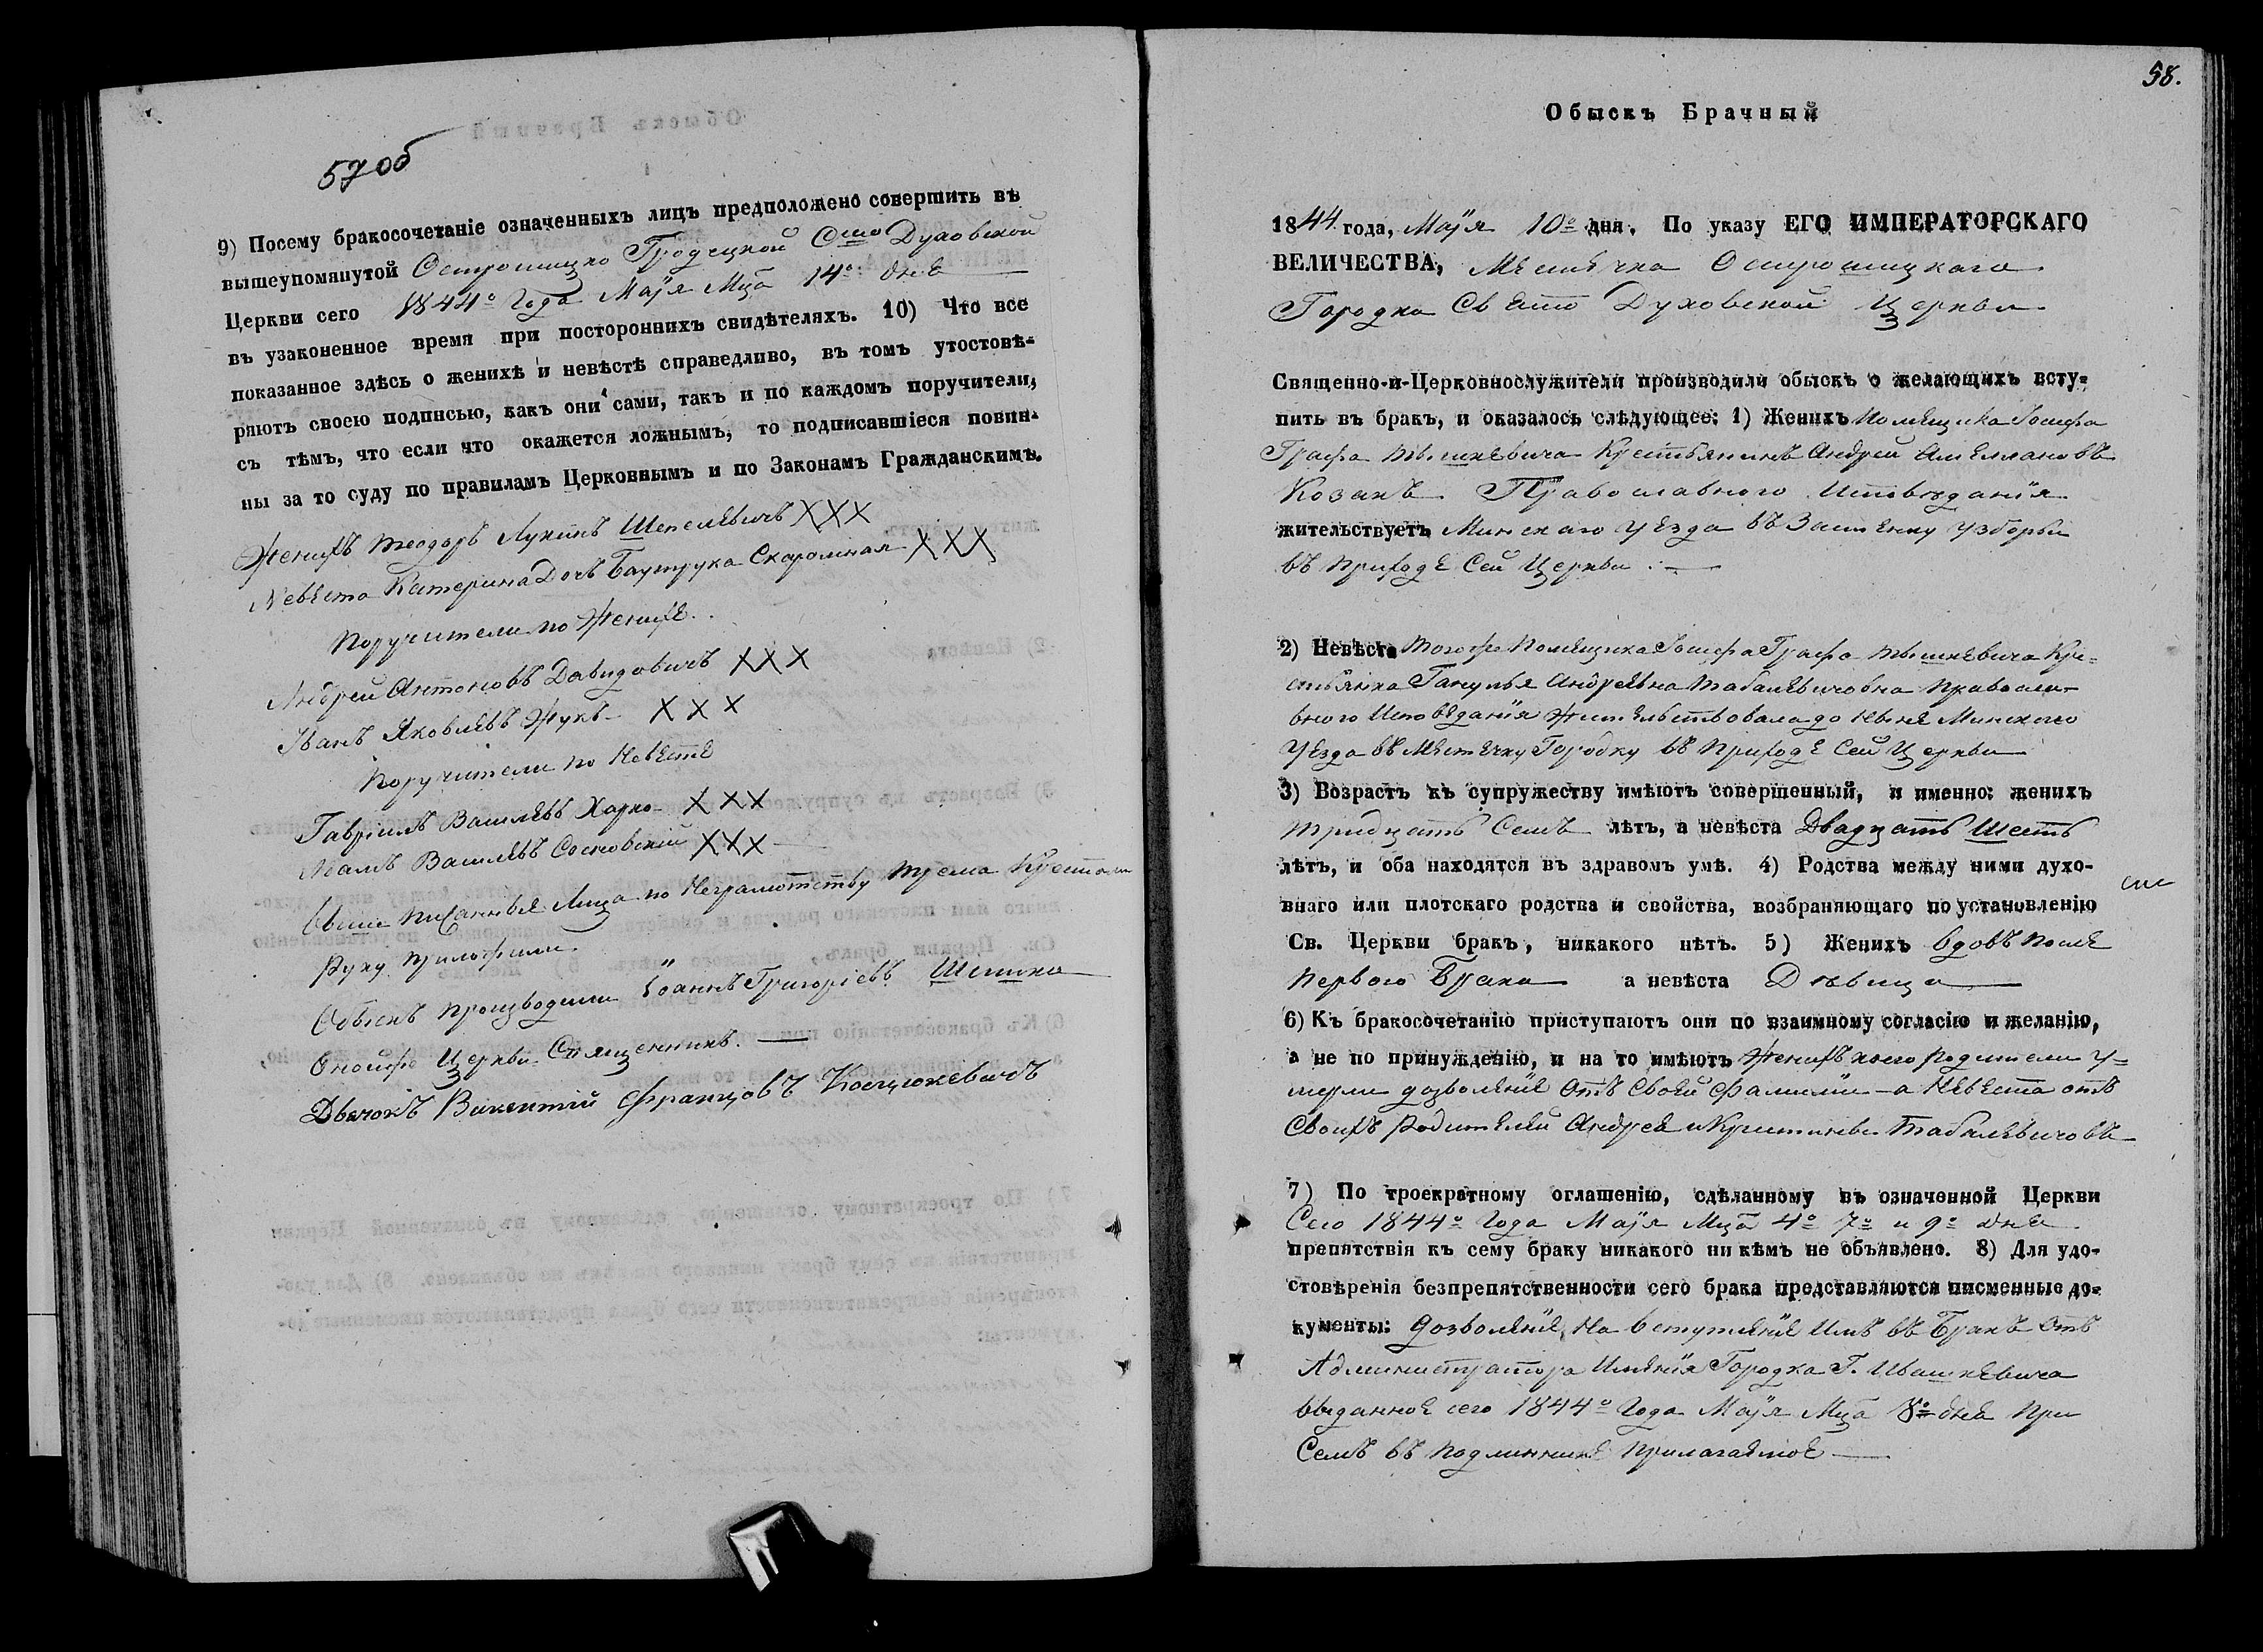 57 об
9) Посему бракосочетаніе означенныхъ лицъ предположено совершить въ
вышеупомянутой Острошицко Гродецкой Сто Духовской
Церкви сего 1844о Года Маія Мца 14о: дня
въ узаконенное время при постороннихъ свидѣтеляхъ. 10) Что все
показанное здѣсь о женихѣ и невѣстѣ справедливо, въ томъ утостовѣ-
ряютъ своею подписью, какъ они сами, такъ и по каждомъ поручители,
съ тѣмъ, что если что окажется ложнымъ, то подписавшіеся повин-
ны за то суду по правиламъ Церковнымъ и по Законамъ Гражданскимъ.
Женихъ Теодоръ Лукинъ Шепелевичъ ХХХ
Невеста Катерина Дочь Баутрука Скаромная ХХХ
Поручители по Женихе.
Андрей Антоновъ Давидовичъ ХХХ
Іванъ Яковлевъ Жукъ ХХХ
Поручители по Невесте
Гавріилъ Васильевъ Харко ХХХ
Василевъ Сосновскій ХХХ
Више писанные Лица по Неграмотству трема Крестами
Руку приложили.
Обыскъ производили Іоаннъ Григоріевъ Шешко
Оной Церкви Священникъ.
Дьячокъ Викентій Францовъ Косцюкевичъ
58.
Обыскъ Брачный
1844 года, Маія 10о дня. По указу ЕГО ИМПЕРАТОРСКАГО
ВЕЛИЧЕСТВА, Местечка Острошицкаго
Городка Свято Духовской Церкви
Священно-и-Церковнослужители производили обыскъ о желающихъ всту-
пить въ бракъ, и оказалось слѣдующее: 1) Женихъ Помещика Іосифа
Графа Тышкевича Крестьянинъ Андрей Амеляновъ
Козакъ Православного Исповеданія
жительствуетъ Минскаго Уезда въ Застенку Узборьи
въ Приходе Сей Церкви
2) Невѣста Тогожъ Помещика Іосифа Графа Тышкевича Кре-
стьянка Ганулья Андреевна Табалевичовна Правосла-
вного Исповеданія Жительствовала до Ныне Минского
Уезда въ Местечку Городку въ Приходе Сей Церкви
3) Возрастъ къ супружеству имѣютъ совершенный, и именно: женихъ
Тридцать Семь лѣтъ, а невѣста Двадцать Шесть
лѣтъ, и оба находятся въ здравомъ умѣ. 4) Родства между ними духо-
внаго или плотскаго родства и свойства, возбраняющаго по установленію
Св. Церкви бракъ, никакого нѣтъ. 5) Женихъ Вдовъ После
Первого Брака а невѣста Девица
6) Къ бракосочетанію приступаютъ они по взаимному согласію и желанію,
а не по принужденію, и на то имѣютъ Женихъ коего Родители у-
мерли дозволеніе отъ Своей Фамиліи а Невеста отъ
Своихъ Родителей Андрея и Кристины Табалевичовъ
7) По троекратному оглашенію, сдѣланному въ означенной Церкви
Сего 1844о Года Маія Мца 4о 7о и 9о дня
препятствія къ сему браку никакого ни кѣмъ не объявлено. 8) Для удо-
стовѣренія безпрепятственности сего брака представляются писменные до-
кументы: Дозволеніе, На вступленіе Имъ въ Бракъ отъ
Администратора Именія Городка Г. Ивашкевича
выданное сего 1844о Года Маія Мца 8о дня При
Семъ въ подлиннике прилагаемое